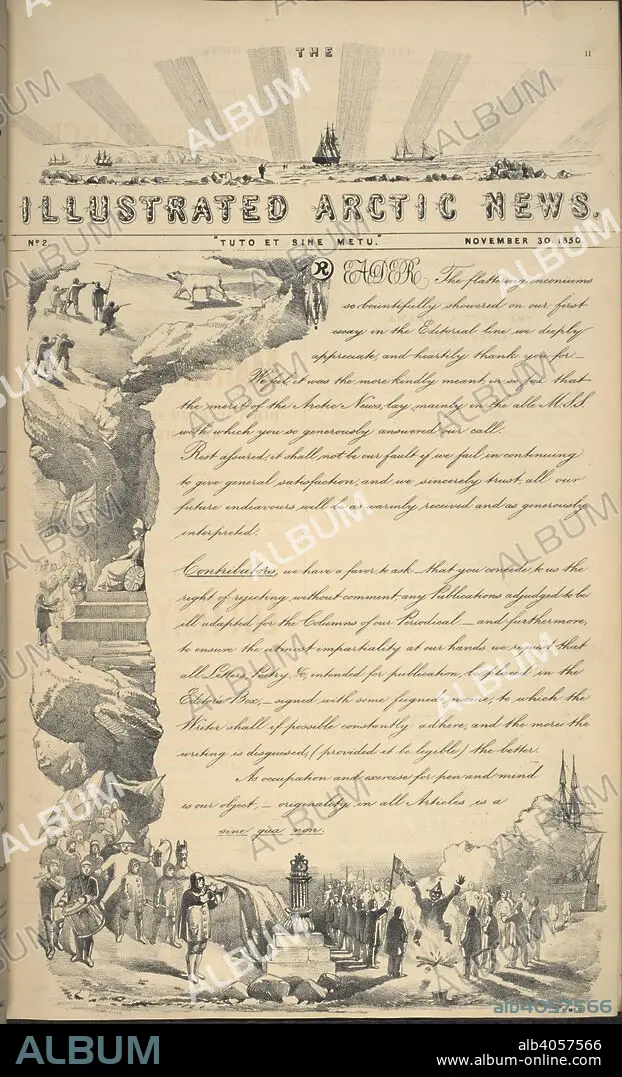 THE
11
ILLUSTRATED ARCTIC NEWS.
Nº 2.
"TUTO ET SINE METU."
NOVEMBER 30. 1850.
READER, The flattering encomiums
so bountifully showered on our first
essay in the Editorial line we deeply
appreciate, and heartily thank you for —
We feel it was the more kindly meant, in so far that
the merit of the Arctic News, lay mainly in the able M.S.S.
with which you so generously answered our call.
Rest assured, it shall not be our fault if we fail in continuing
to give general satisfaction, and we sincerely trust, all our
future endeavours will be as warmly received and as generously
interpreted.
Contributors, we have a favor to ask — that you concede to us the
right of rejecting, without comment, any Publications adjudged to be
ill adapted for the Columns of our Periodical — and furthermore,
to ensure the utmost impartiality at our hands we request that
all Letters, Poetry, &c, intended for publication, be placed in the
Editors Box, — signed with some feigned name, to which the
Writer shall if possible constantly adhere, and the more the
writing is disguised, (provided it be legible) the better.
As occupation and exercise for pen and mind
is our object, — originality in all Articles is a
sine qua non.
ALBUM
alb4057566
ALBUM
alb4057566
www.album-online.com